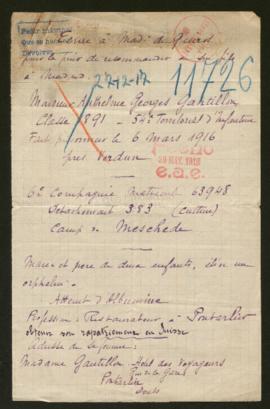 écrire à Made de
pour le prier de recommander
à Madrid
22-12-17
11726
Monsieur Anthelme Georges Gantillon
Classe 1891 - 54e Territorial d'Infanterie
Fait prisonnier le 6 Mars 1916
près Verdun
29 MAY. 1918
e.a.e.
6e Compagnie Matricule 63948
Détachement 383 (Culture)
Camp de Meschede
Marié et père de deux enfants, élève un
orphelin.
Atteint d'Albumine
Profession : Restaurateur à Pontarlier
obtenir son rapatriement en Suisse
Adresse de sa femme :
Madame Gantillon Hôtel des Voyageurs
Rue de la Gare
Pontarlier
Doubs